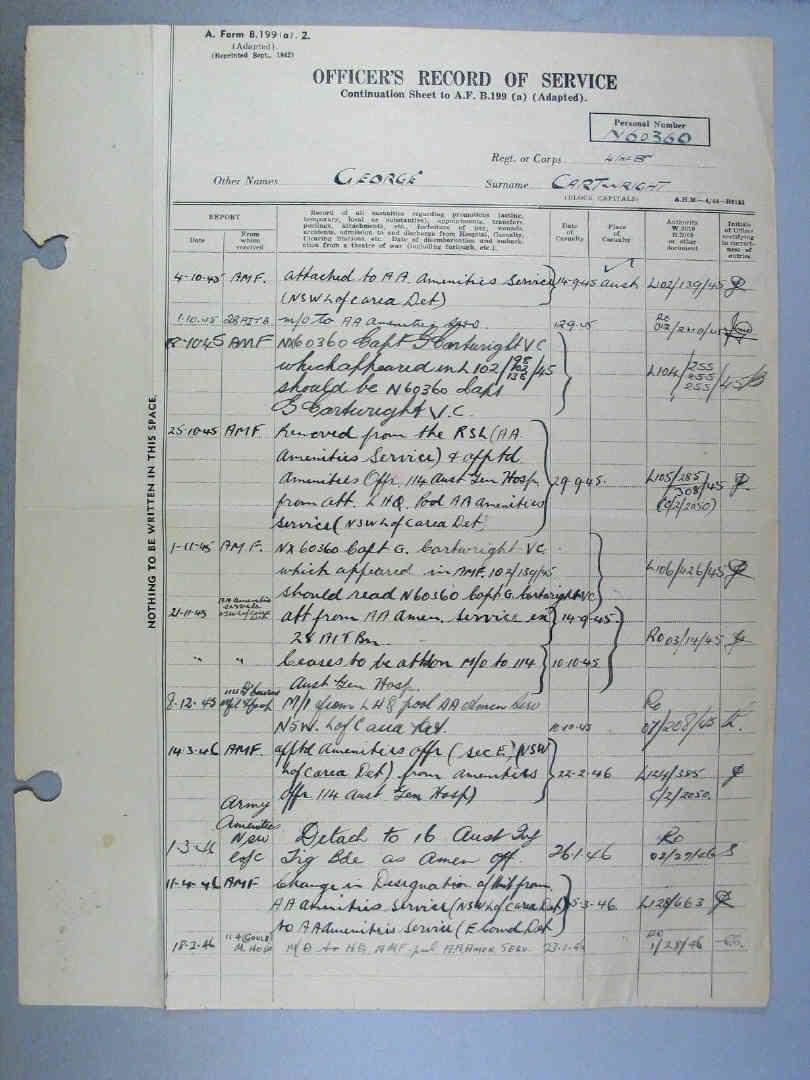 A. Form B.199(a). 2.
(Adapted).
(Reprinted Sept., 1942)
OFFICER'S RECORD OF SERVICE
Continuation Sheet to A.F. B.199 (a) (Adapted).
Personal Number
N60360
Regt. or Corps
Other Names GEORGE Surname CARTWRIGHT
(BLOCK CAPITALS)
REPORT
Date
From which received
Record of all casualties regarding promotions (acting, temporary, local or substantive), appointments, transfers, postings, attachments, etc., forfeiture of pay, wounds, accidents, admission to and discharge from Hospital, Casualty Clearing Stations, etc. Date of disembarkation and embarkation from a theatre of war (including furlough, etc.).
Date of Casualty
Place of Casualty
Authority W.3010 B.2069 or other document
Initials of Officer certifying to correctness of entries
4-10-45 AMF. attached to AA. Amenities Service 14-9-45 Aust L102/139/45
(NSW L of C area Det)
1-10-45 28 AITB m/o to AA amenities 12-9-45
AMF NX60360 Capt G Cartwright VC
which appeared in L102/ /45 L104/255 /45
should be N60360 Capt
G Cartwright V.C.
25-10-45 AMF Removed from the RSL (AA
Amenities Service) & apptd
Amenities Offr. 114 Aust Gen Hosp 29-9-45. L105/285/308/45
from att. LHQ. Pool AA amenities
service (NSW L of C area Det)
1-11-45 AMF. NX60360 Capt G. Cartwright VC
which appeared in AMF. 102/139/45 L106/426/45
should read N60360 Capt G. Cartwright VC
21-11-45 att from AA Amen. Service ex 14-9-45
28 AIT Bn. Ro 03/14/45
" " Ceases to be att on M/O to 114 10-10-45
Aust Gen Hosp.
8-12-45 M/I from LHQ pool AA Amen Serv Ro
NSW. L of C area Det. 10-10-45 07/208/45
14-3-46 AMF. apptd Amenities offr (Sec E) (NSW
L of C area Det) from amenities 22-2-46 L124/385
Offr 114 Aust Gen Hosp)
Army
Amenities
NSW Detach to 16 Aust Inf Ro
1-3-46 L of C Trg Bde as Amen off. 26-1-46 02/27/46
11-4-46 AMF Change in Designation of Unit from
AA amenities Service (NSW L of C area Det) 5-3-46. L128/663
to AA Amenities Service (E Comd Det)
18-2-46 M/O to HQ AMF pool AA Amen Serv. 1/28/46
NOTHING TO BE WRITTEN IN THIS SPACE.